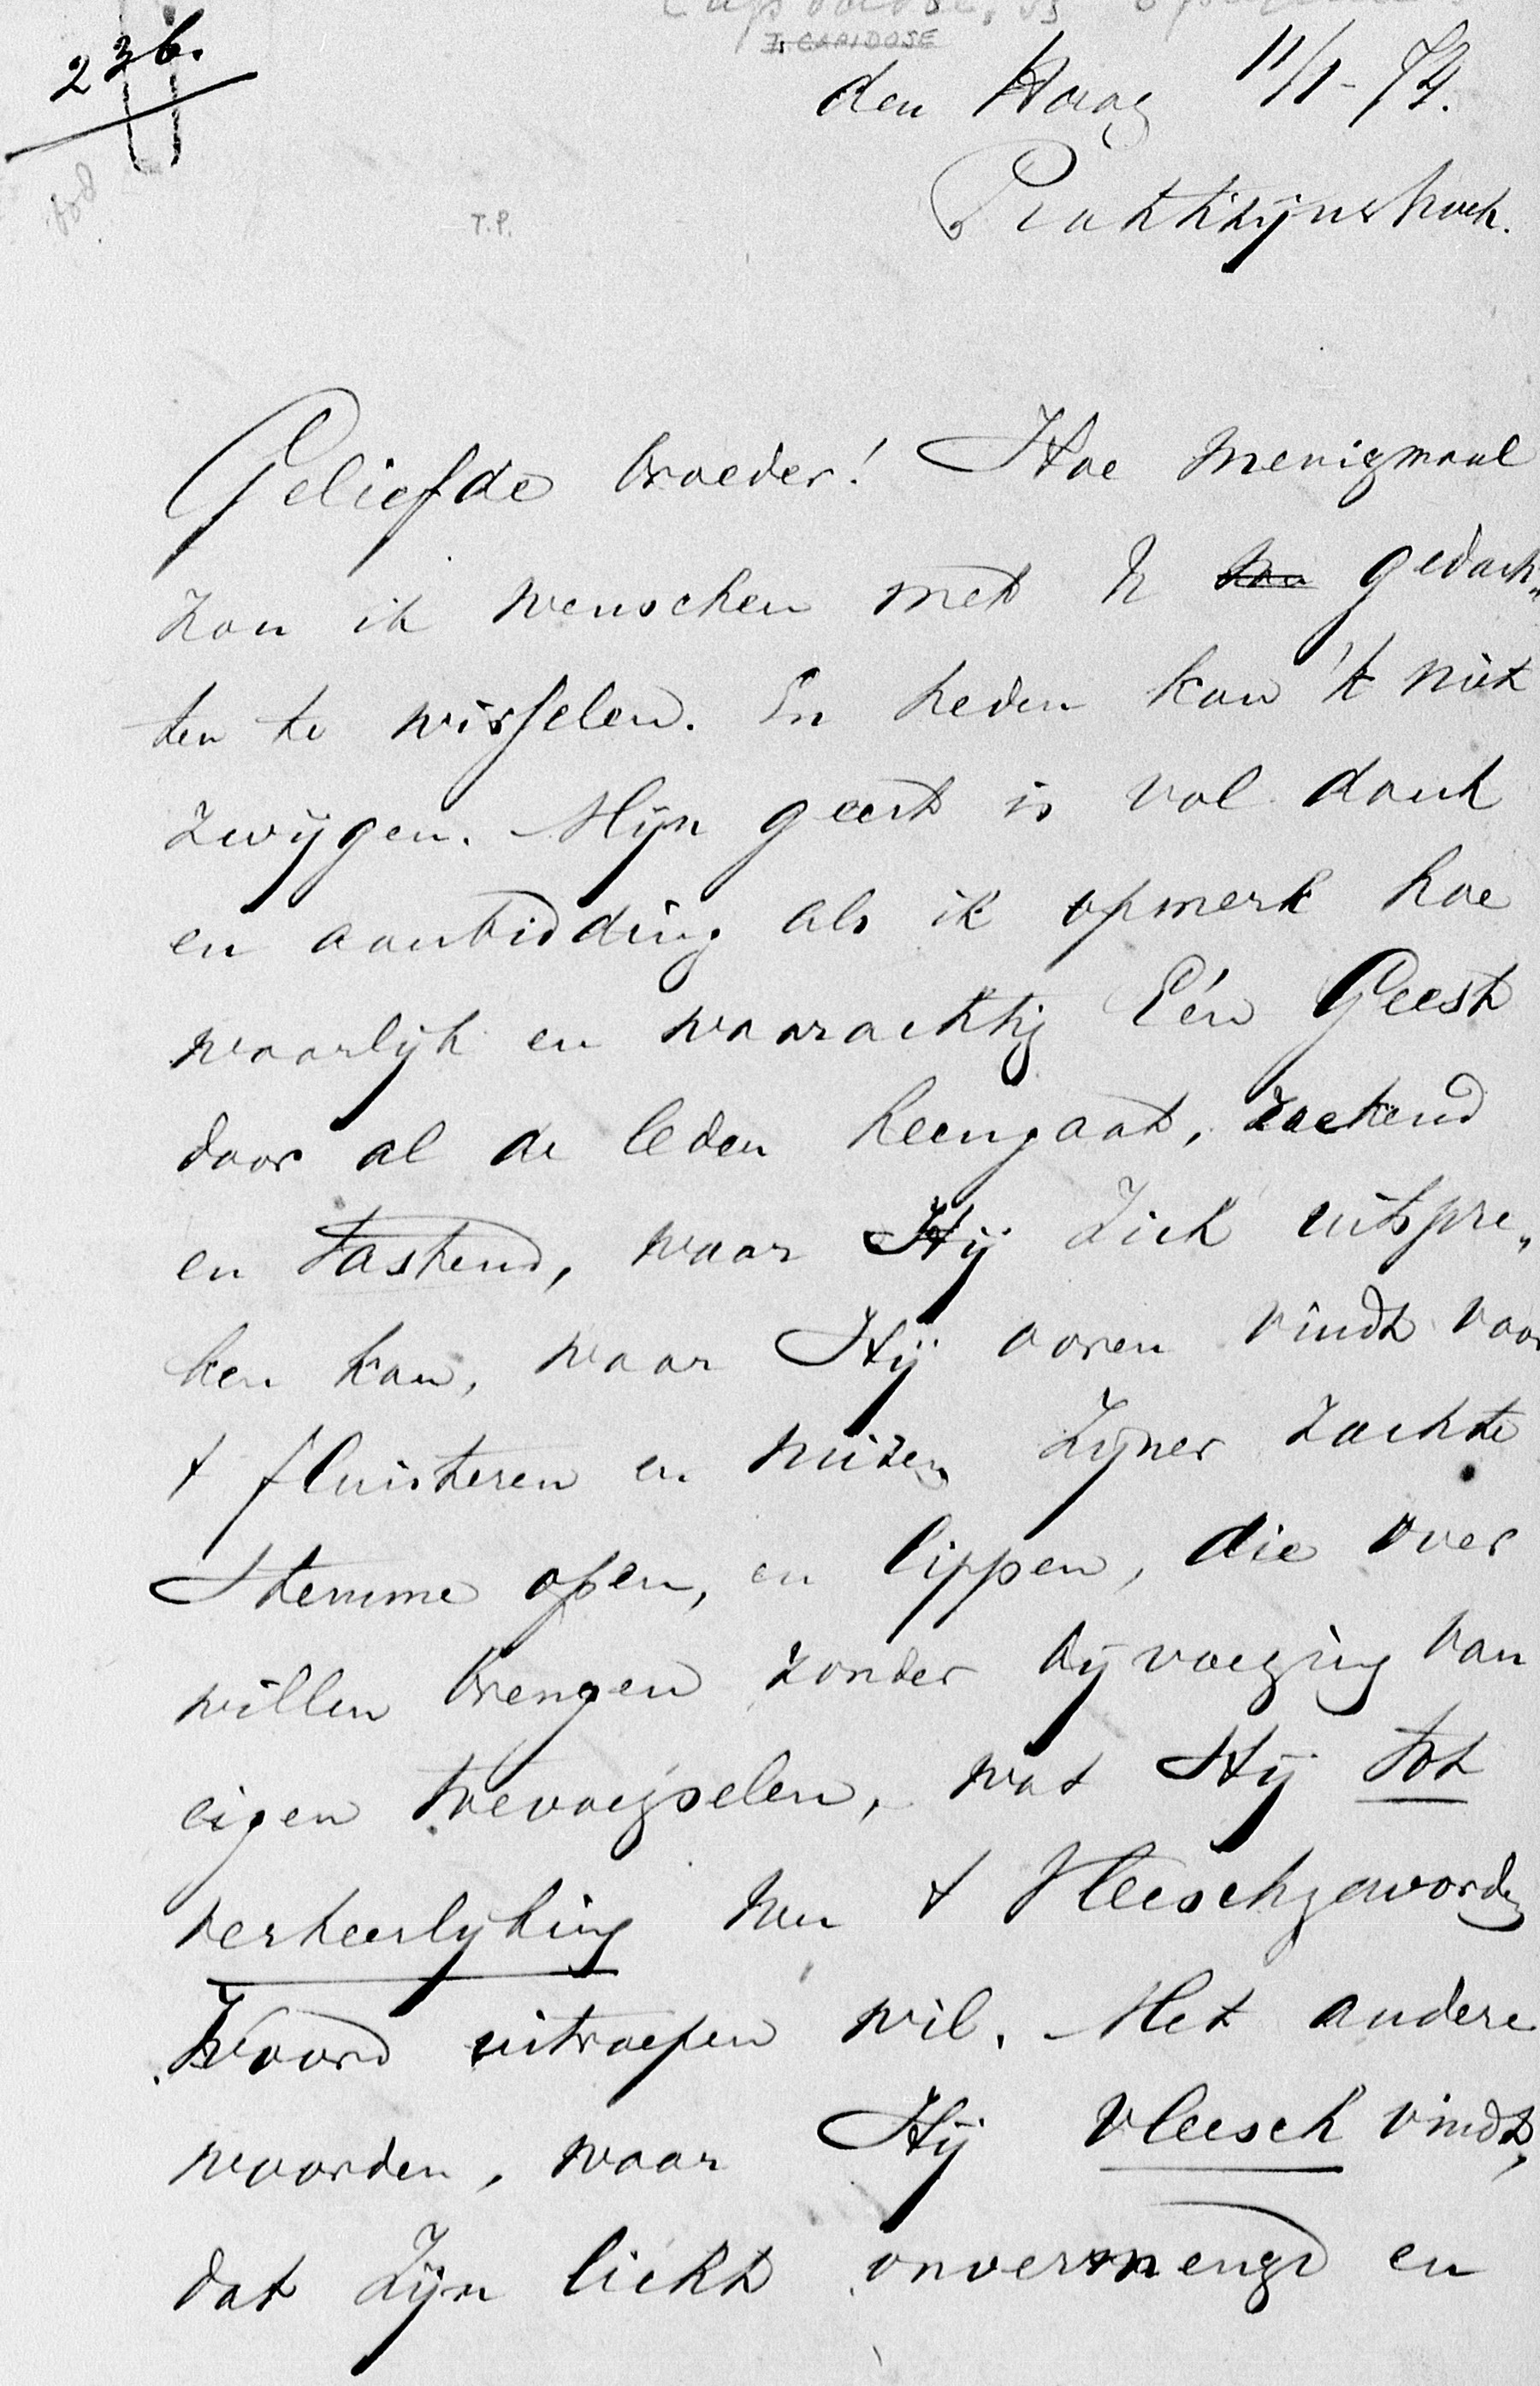 236.
I. CAPADOSE
den Haag 11/1-74.
Prakkizijnshoek.
T.P.
Geliefde broeder! Hoe menigmaal
zou ik wenschen met U gedach„
ten te wisselen. En heden kan 'k niet
zwijgen. Mijn geest is vol dank
en aanbidding als ik opmerk hoe
waarlijk en waarachtig Eén Geest
door al de leden heengaat, zoekend
en tastend, waar Hij Zich uitspre„
ken kan, waar Hij ooren vindt voor
't fluisteren en suizen Zijner zachte
Stemme open, en lippen, die over
willen brengen zonder bijvoeging van
eigen toevoegselen, wat Hij tot
verheerlijking van 't Vleeschgeworden
Woord uitroepen wil. Met andere
woorden, waar Hij vleesch vindt,
dat Zijn licht onvermengd en